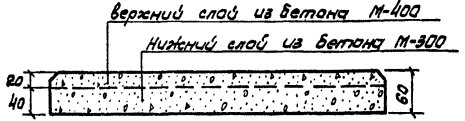 верхний слой из бетона М-400
Нижний слой из бетона М-300
20
40
60